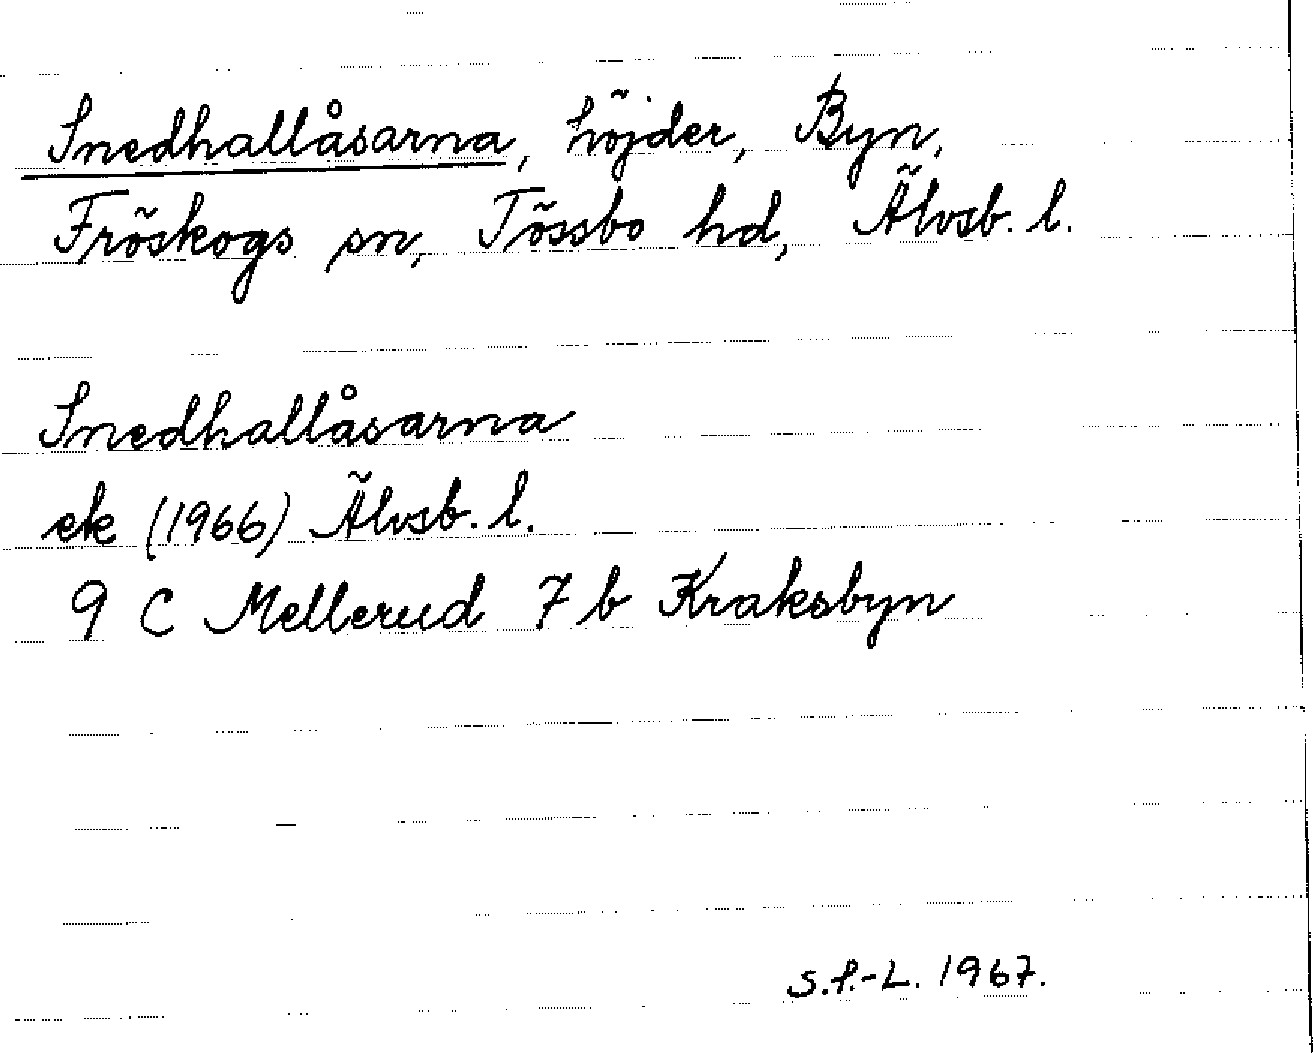 Snedhallåsarna, höjder, Byn,
Fröskogs sn, Tössbo hd, Älvsb. l.
Snedhallåsarna
ek (1966) Älvsb. l.
9 C Mellerud 7 b Kraksbyn
S.f.-L. 1967.